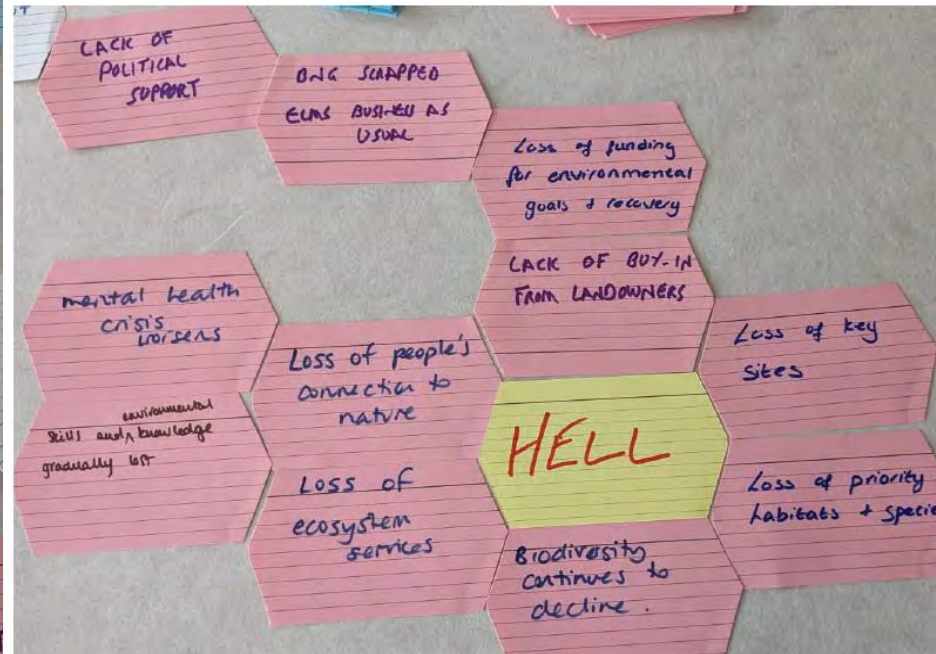 LACK OF
POLITICAL
SUPPORT
BNG SCRAPPED
ELMS BUSINESS AS
USUAL
Loss of funding
for environmental
goals + recovery
LACK OF BUY-IN
FROM LANDOWNERS
mental health
crisis
worsens
Loss of people's
connection to
nature
Loss of key
sites
environmental
skills and ^ knowledge
gradually lost
HELL
Loss of
ecosystem
services
Loss of priority
habitats + specie
Biodiversity
continues to
decline.